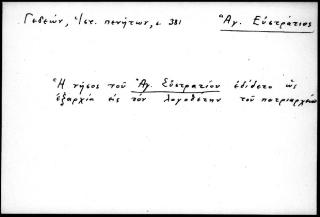 Γεδεών, Πατ. πενήτων, σ. 381
Ἅγ. Εὐστράτιος
Ἡ νῆσος τοῦ Ἁγ. Εὐστρατίου ἐδίδετο ὡς
ἐξαρχία εἰς τὸν λογοθέτην τοῦ πατριαρχείου